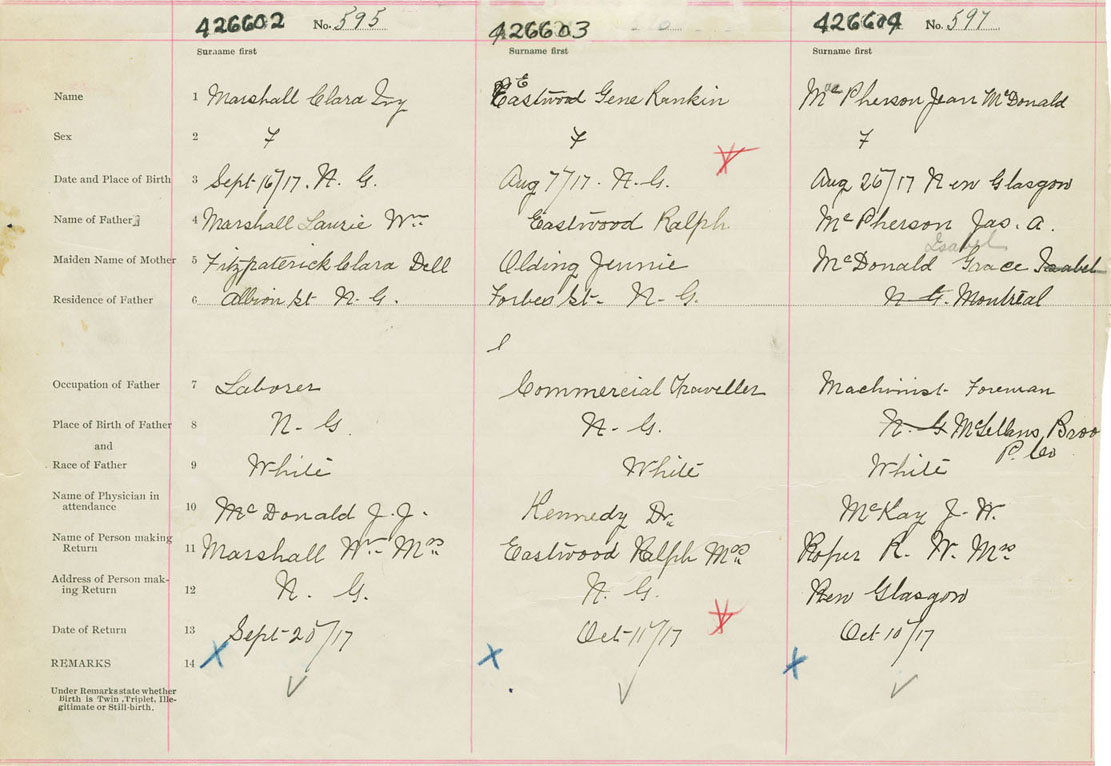 426602 No. 595 426603 426604 No. 597
Surname first Surname first Surname first
Name 1 Marshall Clara Ivy Eastwood Gene Rankin McPherson Jean McDonald
Sex 2 F F F
Date and Place of Birth 3 Sept 16/17. N. G. Aug 7/17. N. G. Aug 26/17 New Glasgow
Name of Father 4 Marshall Laurie Wm Eastwood Ralph McPherson Jas. A.
Isabel
Maiden Name of Mother 5 Fitzpaterick Clara Dell Olding Jennie McDonald Grace Isabel
Residence of Father 6 Albion St N. G. Forbes St- N- G. N- G. Montreal
Occupation of Father 7 Laborer Commercial Traveller Machinist Foreman
Place of Birth of Father 8 N- G. N- G. N- G McLellans, Broo
and P. Co
Race of Father 9 White White White
Name of Physician in
attendance 10 McDonald J. J. Kennedy Dr. McKay J. W.
Name of Person making
Return 11 Marshall Wm Mrs Eastwood Ralph Mrs Roper R. W. Mrs
Address of Person mak-
ing Return 12 N. G. N. G. New Glasgow
Date of Return 13 Sept 20/17 Oct 11/17 Oct 10/17
REMARKS 14
Under Remarks state whether
Birth is Twin, Triplet, Ille-
gitimate or Still-birth.